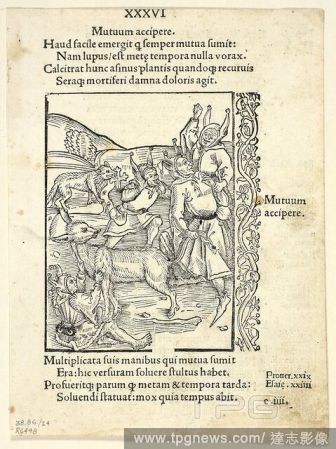 XXXVI
Mutuum accipere.
Haud facile emergit q̃ semper mutua sumit:
Nam lupus/est metę tempora nulla vorax.
Calcitrat hunc asinus plantis quandoq; recuruis
Seraq; mortiferi damna doloris agit.
Mutuum
accipere.
Multiplicata suis manibus qui mutua sumit
Era: hic versuram soluere stultus habet.
Profueritq; parum q̃ metam & tempora tarda:
Soluendi statuat: mox quia tempus abit.
Prouer. xxix
Esaię. xxiiii
e .iiii.
38.86/24
R6498
TPG
www.tpgnews.com/ 達志影像